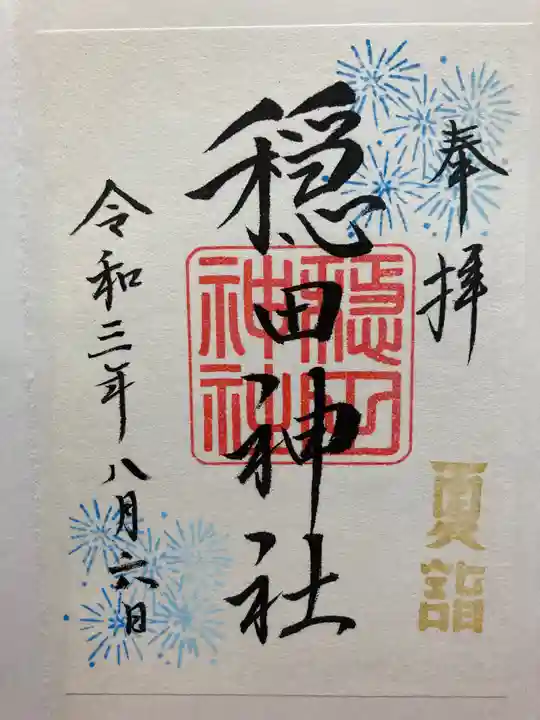 奉拝
夏詣
穏田神社
穏田
神社
令和三年八月六日